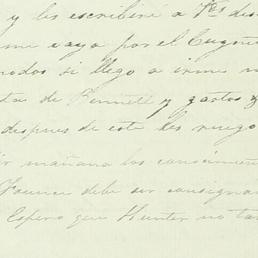 y les escribiré a Vds des
me vaya por el Eugene
modos si llego a irme
ta de Bennett y gastos
despues de este les ruego
mañana los conocimien
Faunce debe ser consigna
Espero que Hunter no ta